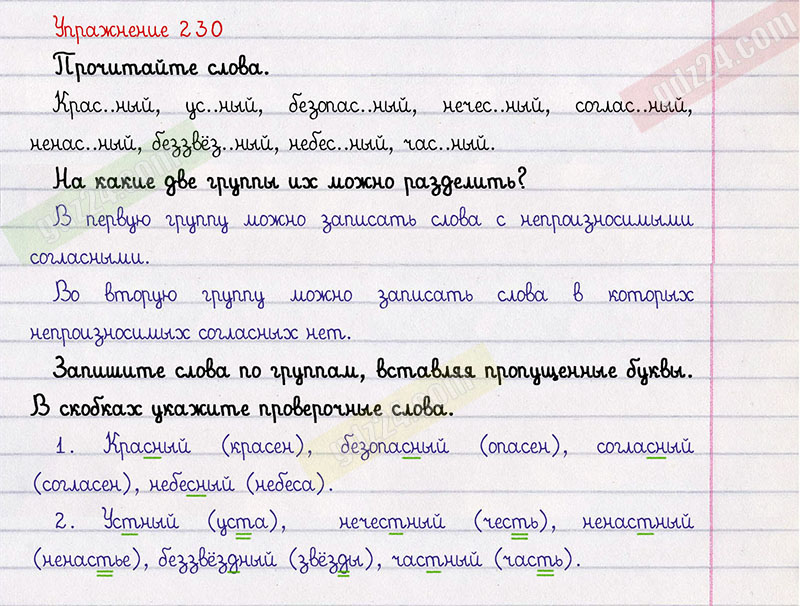 Упражнение 230
Прочитайте слова.
Крас..ный, ус..ный, безопас..ный, нечес..ный, соглас..ный,
ненас..ный, беззвёз..ный, небес..ный, час..ный.
На какие две группы их можно разделить?
В первую группу можно записать слова с непроизносимыми
согласными.
Во вторую группу можно записать слова в которых
непроизносимых согласных нет.
Запишите слова по группам, вставляя пропущенные буквы.
В скобках укажите проверочные слова.
1. Красный (красен), безопасный (опасен), согласный
(согласен), небесный (небеса).
2. Устный (уста), нечестный (честь), ненастный
(ненастье), беззвёздный (звёзды), частный (часть).
gdz24.com
gdz24.com
gdz24.com